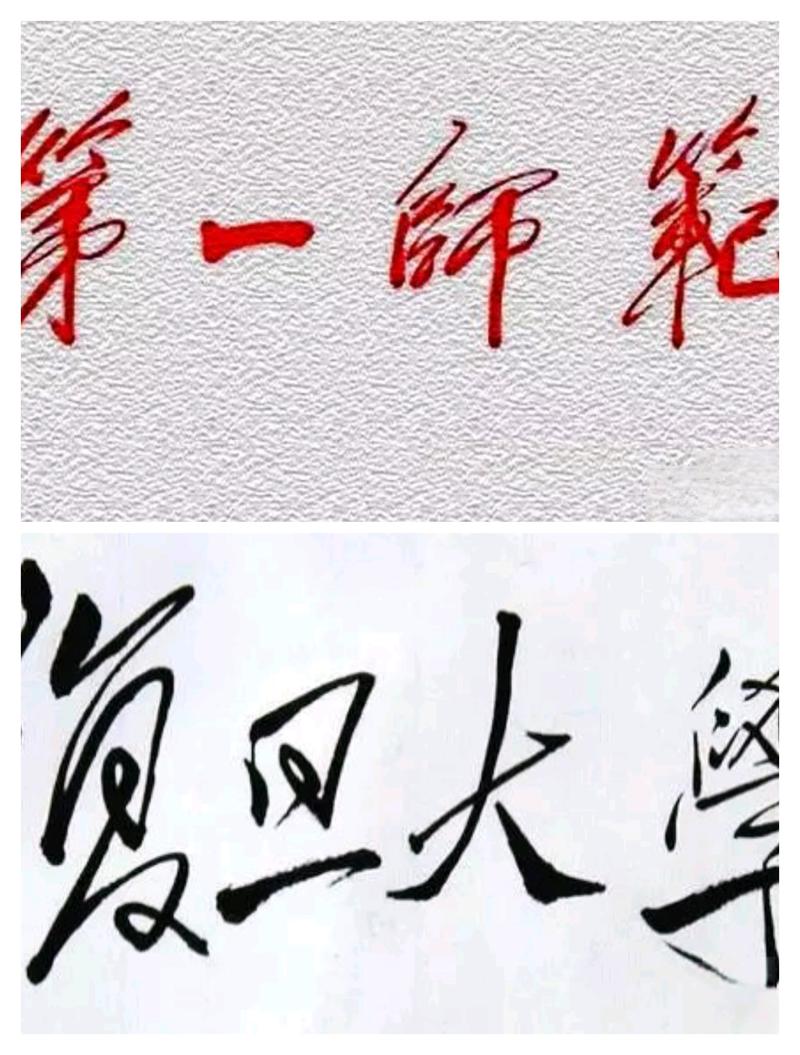 第一師範
復旦大學